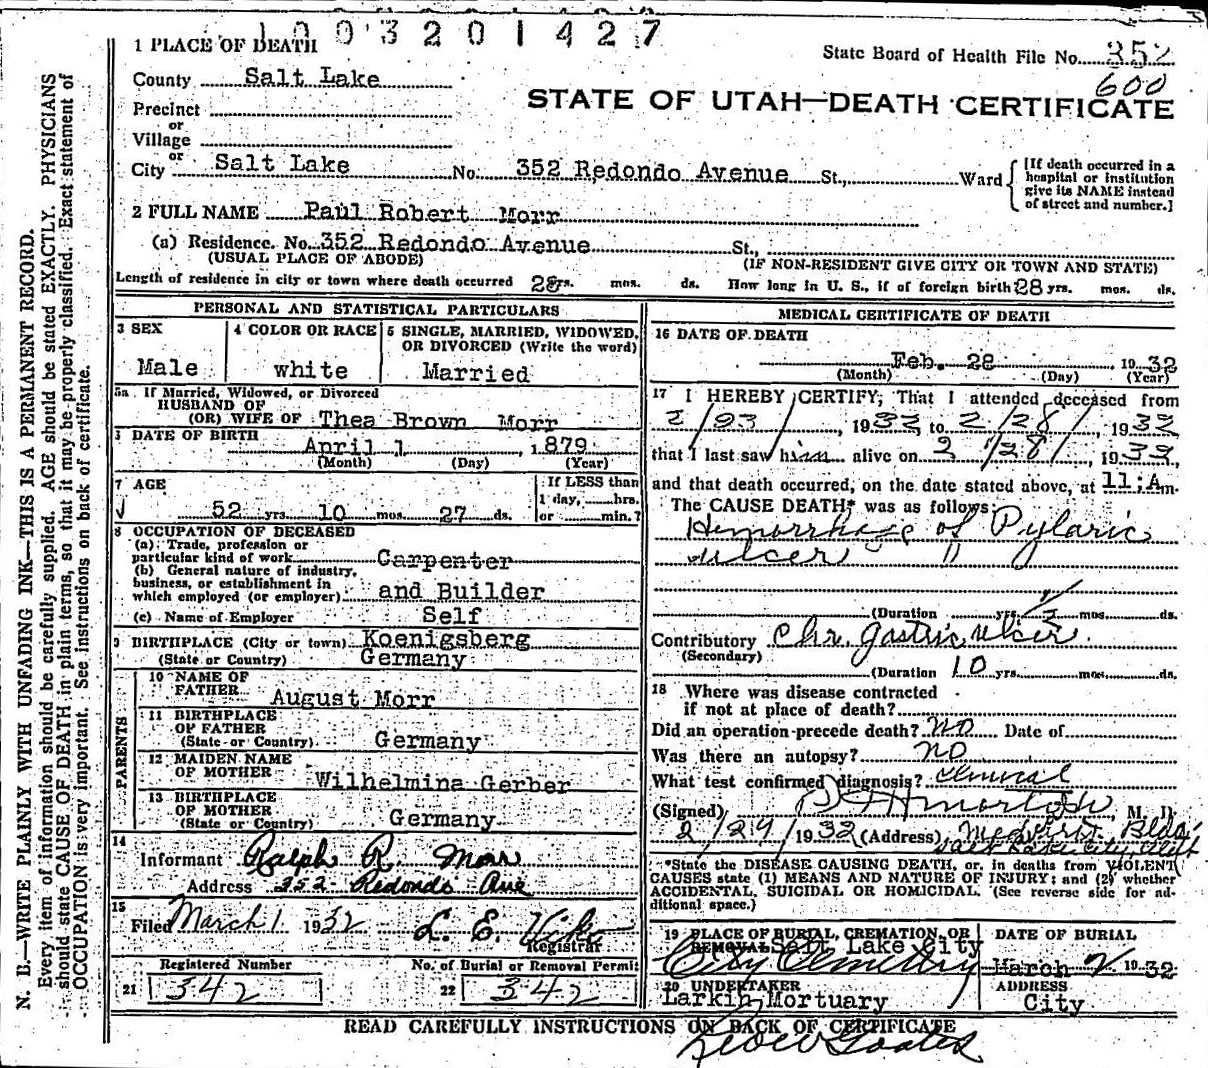 1003201427
1 PLACE OF DEATH
State Board of Health File No. 352
600
County Salt Lake
STATE OF UTAH—DEATH CERTIFICATE
Precinct
or
Village
or
City Salt Lake No. 352 Redondo Avenue St., Ward
[If death occurred in a hospital or institution give its NAME instead of street and number.]
2 FULL NAME Paul Robert Morr
(a) Residence. No. 352 Redondo Avenue St.,
(USUAL PLACE OF ABODE) (IF NON-RESIDENT GIVE CITY OR TOWN AND STATE)
Length of residence in city or town where death occurred 28 yrs. mos. ds. How long in U. S., if of foreign birth 28 yrs. mos. ds.
PERSONAL AND STATISTICAL PARTICULARS
3 SEX
Male
4 COLOR OR RACE
white
5 SINGLE, MARRIED, WIDOWED, OR DIVORCED (Write the word)
Married
5a If Married, Widowed, or Divorced
HUSBAND OF
(OR) WIFE OF Thea Brown Morr
DATE OF BIRTH April 1, 1879
(Month) (Day) (Year)
7 AGE
52 yrs. 10 mos. 27 ds.
If LESS than
1 day, hrs.
or min.?
8 OCCUPATION OF DECEASED
(a) Trade, profession or
particular kind of work Carpenter
(b) General nature of industry,
business, or establishment in
which employed (or employer) and Builder
(c) Name of Employer Self
9 BIRTHPLACE (City or town) Koenigsberg
(State or Country) Germany
PARENTS
10 NAME OF
FATHER August Morr
11 BIRTHPLACE
OF FATHER
(State or Country) Germany
12 MAIDEN NAME
OF MOTHER Wilhelmina Gerber
13 BIRTHPLACE
OF MOTHER
(State or Country) Germany
14
Informant Ralph R. Morr
Address 352 Redondo Ave
15
Filed March 1 1932 L. E.
Registrar
Registered Number No. of Burial or Removal Permit
21 342 22 342
MEDICAL CERTIFICATE OF DEATH
16 DATE OF DEATH
Feb. 28 1932
(Month) (Day) (Year)
17 I HEREBY CERTIFY, That I attended deceased from
2/23, 1932, to 2/28, 1932
that I last saw him alive on 2/28, 1932,
and that death occurred, on the date stated above, at 11:Am.
The CAUSE DEATH* was as follows:
Hemorrhage of Pyloric
ulcer
(Duration yrs. mos. ds.
Contributory Chr. gastric ulcer.
(Secondary)
(Duration 10 yrs. mos. ds.
18 Where was disease contracted
if not at place of death?
Did an operation precede death? No Date of
Was there an autopsy? no
What test confirmed diagnosis? clinical
(Signed) M. D.
2/29/1932 (Address) Bldg.
Salt Lake City Utah
*State the DISEASE CAUSING DEATH, or, in deaths from VIOLENT
CAUSES state (1) MEANS AND NATURE OF INJURY; and (2) whether
ACCIDENTAL, SUICIDAL OR HOMICIDAL. (See reverse side for additional space.)
19 PLACE OF BURIAL, CREMATION, OR REMOVAL Salt Lake City
City Cemetery
DATE OF BURIAL
March 2 1932
20 UNDERTAKER
Larkin Mortuary
ADDRESS
City
READ CAREFULLY INSTRUCTIONS ON BACK OF CERTIFICATE
N. B.—WRITE PLAINLY WITH UNFADING INK—THIS IS A PERMANENT RECORD.
Every item of information should be carefully supplied. AGE should be stated EXACTLY. PHYSICIANS
should state CAUSE OF DEATH in plain terms, so that it may be properly classified. Exact statement of
OCCUPATION is very important. See instructions on back of certificate.